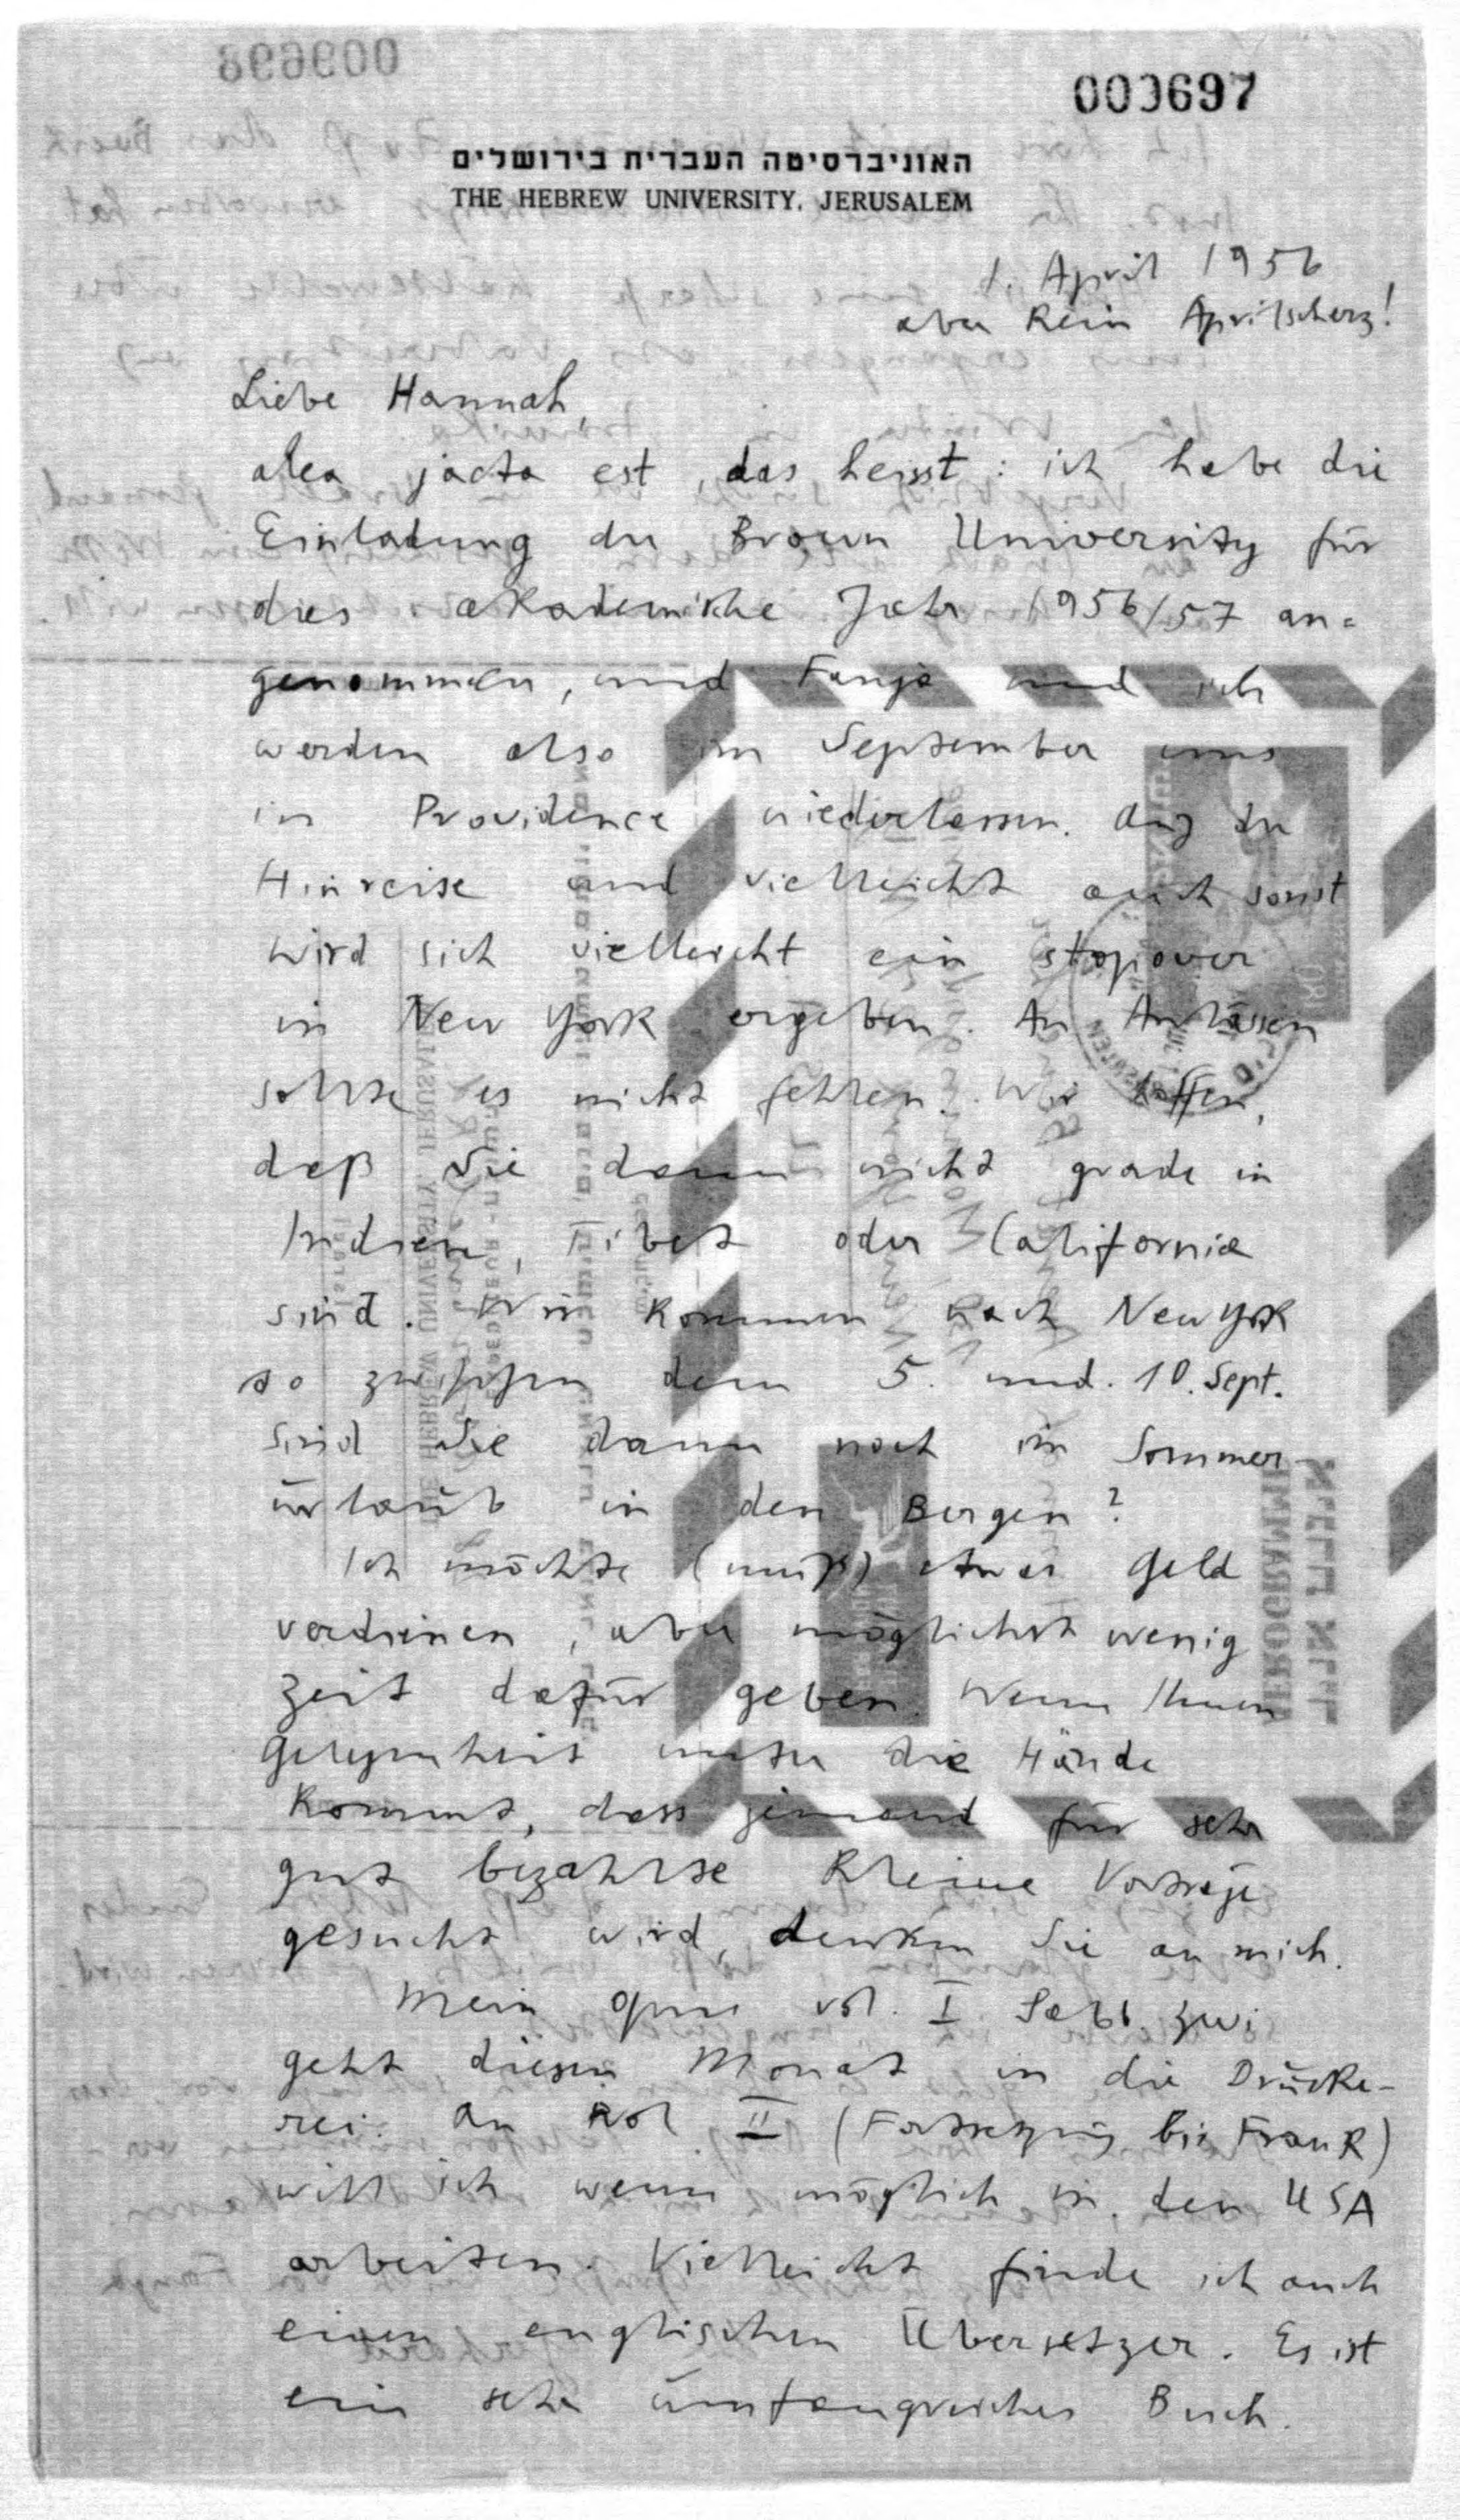 000697
האוניברסיטה העברית בירושלים
THE HEBREW UNIVERSITY, JERUSALEM
1. April 1956
aber kein Aprilscherz!
Liebe Hannah,
alea jacta est, das heisst: ich habe die
Einladung der Brown University für
das akademische Jahr 1956/57 an=
genommen, und Fanja und ich
werden also im September uns
in Providence niederlassen. Auf der
Hinreise und vielleicht auch sonst
wird sich vielleicht ein stopover
in New York ergeben. An Anlässen
sollte es nicht fehlen. Wir hoffen,
daß Sie dann nicht grade in
Indien, Tibet oder California
sind. Wir kommen nach New York
so zwischen dem 5. und. 10. Sept.
Sind Sie dann noch im Sommer-
urlaub in den Bergen?
Ich möchte (muß) etwas Geld
verdienen, aber möglichst wenig
Zeit dafür geben. Wenn Ihnen
Gelegenheit unter die Hände
kommt, dass jemand für sehr
gut bezahlte kleine Vorträge
gesucht wird, denken Sie an mich.
Mein opus vol. I Sabb. Zwi
geht diesen Monat in die Drucke-
rei. An vol II (Fortsetzung bis Frank)
will ich wenn möglich in den USA
arbeiten. Vielleicht finde ich auch
einen englischen Übersetzer. Es ist
ein sehr umfangreiches Buch.